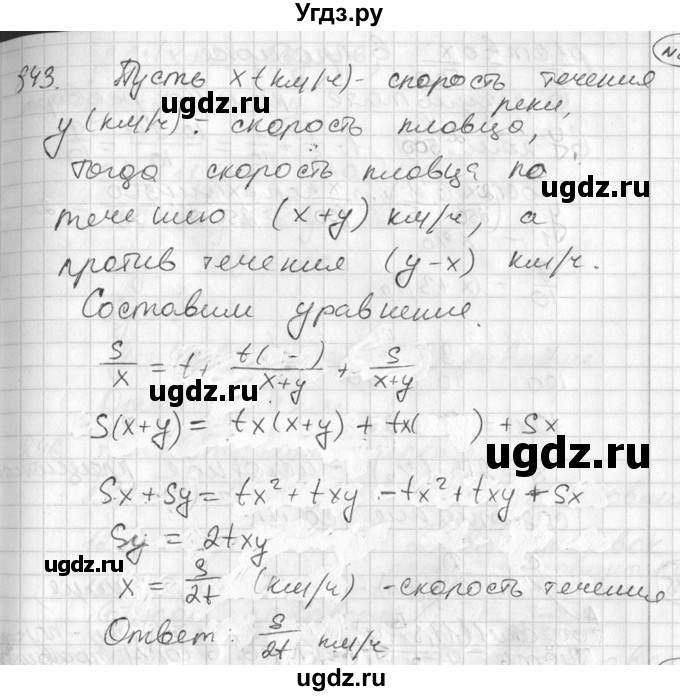 Угдз.ру
343. Пусть x (км/ч) - скорость течения
реки,
y (км/ч) - скорость пловца,
Тогда скорость пловца по
ugdz.ru
течению (x+y) км/ч, а
против течения (y-x) км/ч.
Составим уравнение.
S/x = t + t( - )/(x+y) + S/(x+y)
ugdz.ru
S(x+y) = tx(x+y) + tx( ) + Sx
ugdz.ru
Sx + Sy = tx² + txy - tx² + txy + Sx
ugdz.ru
Sy = 2txy
x = S/2t (км/ч) - скорость течения
Ответ: S/2t км/ч
ugdz.ru
Угдз.ру